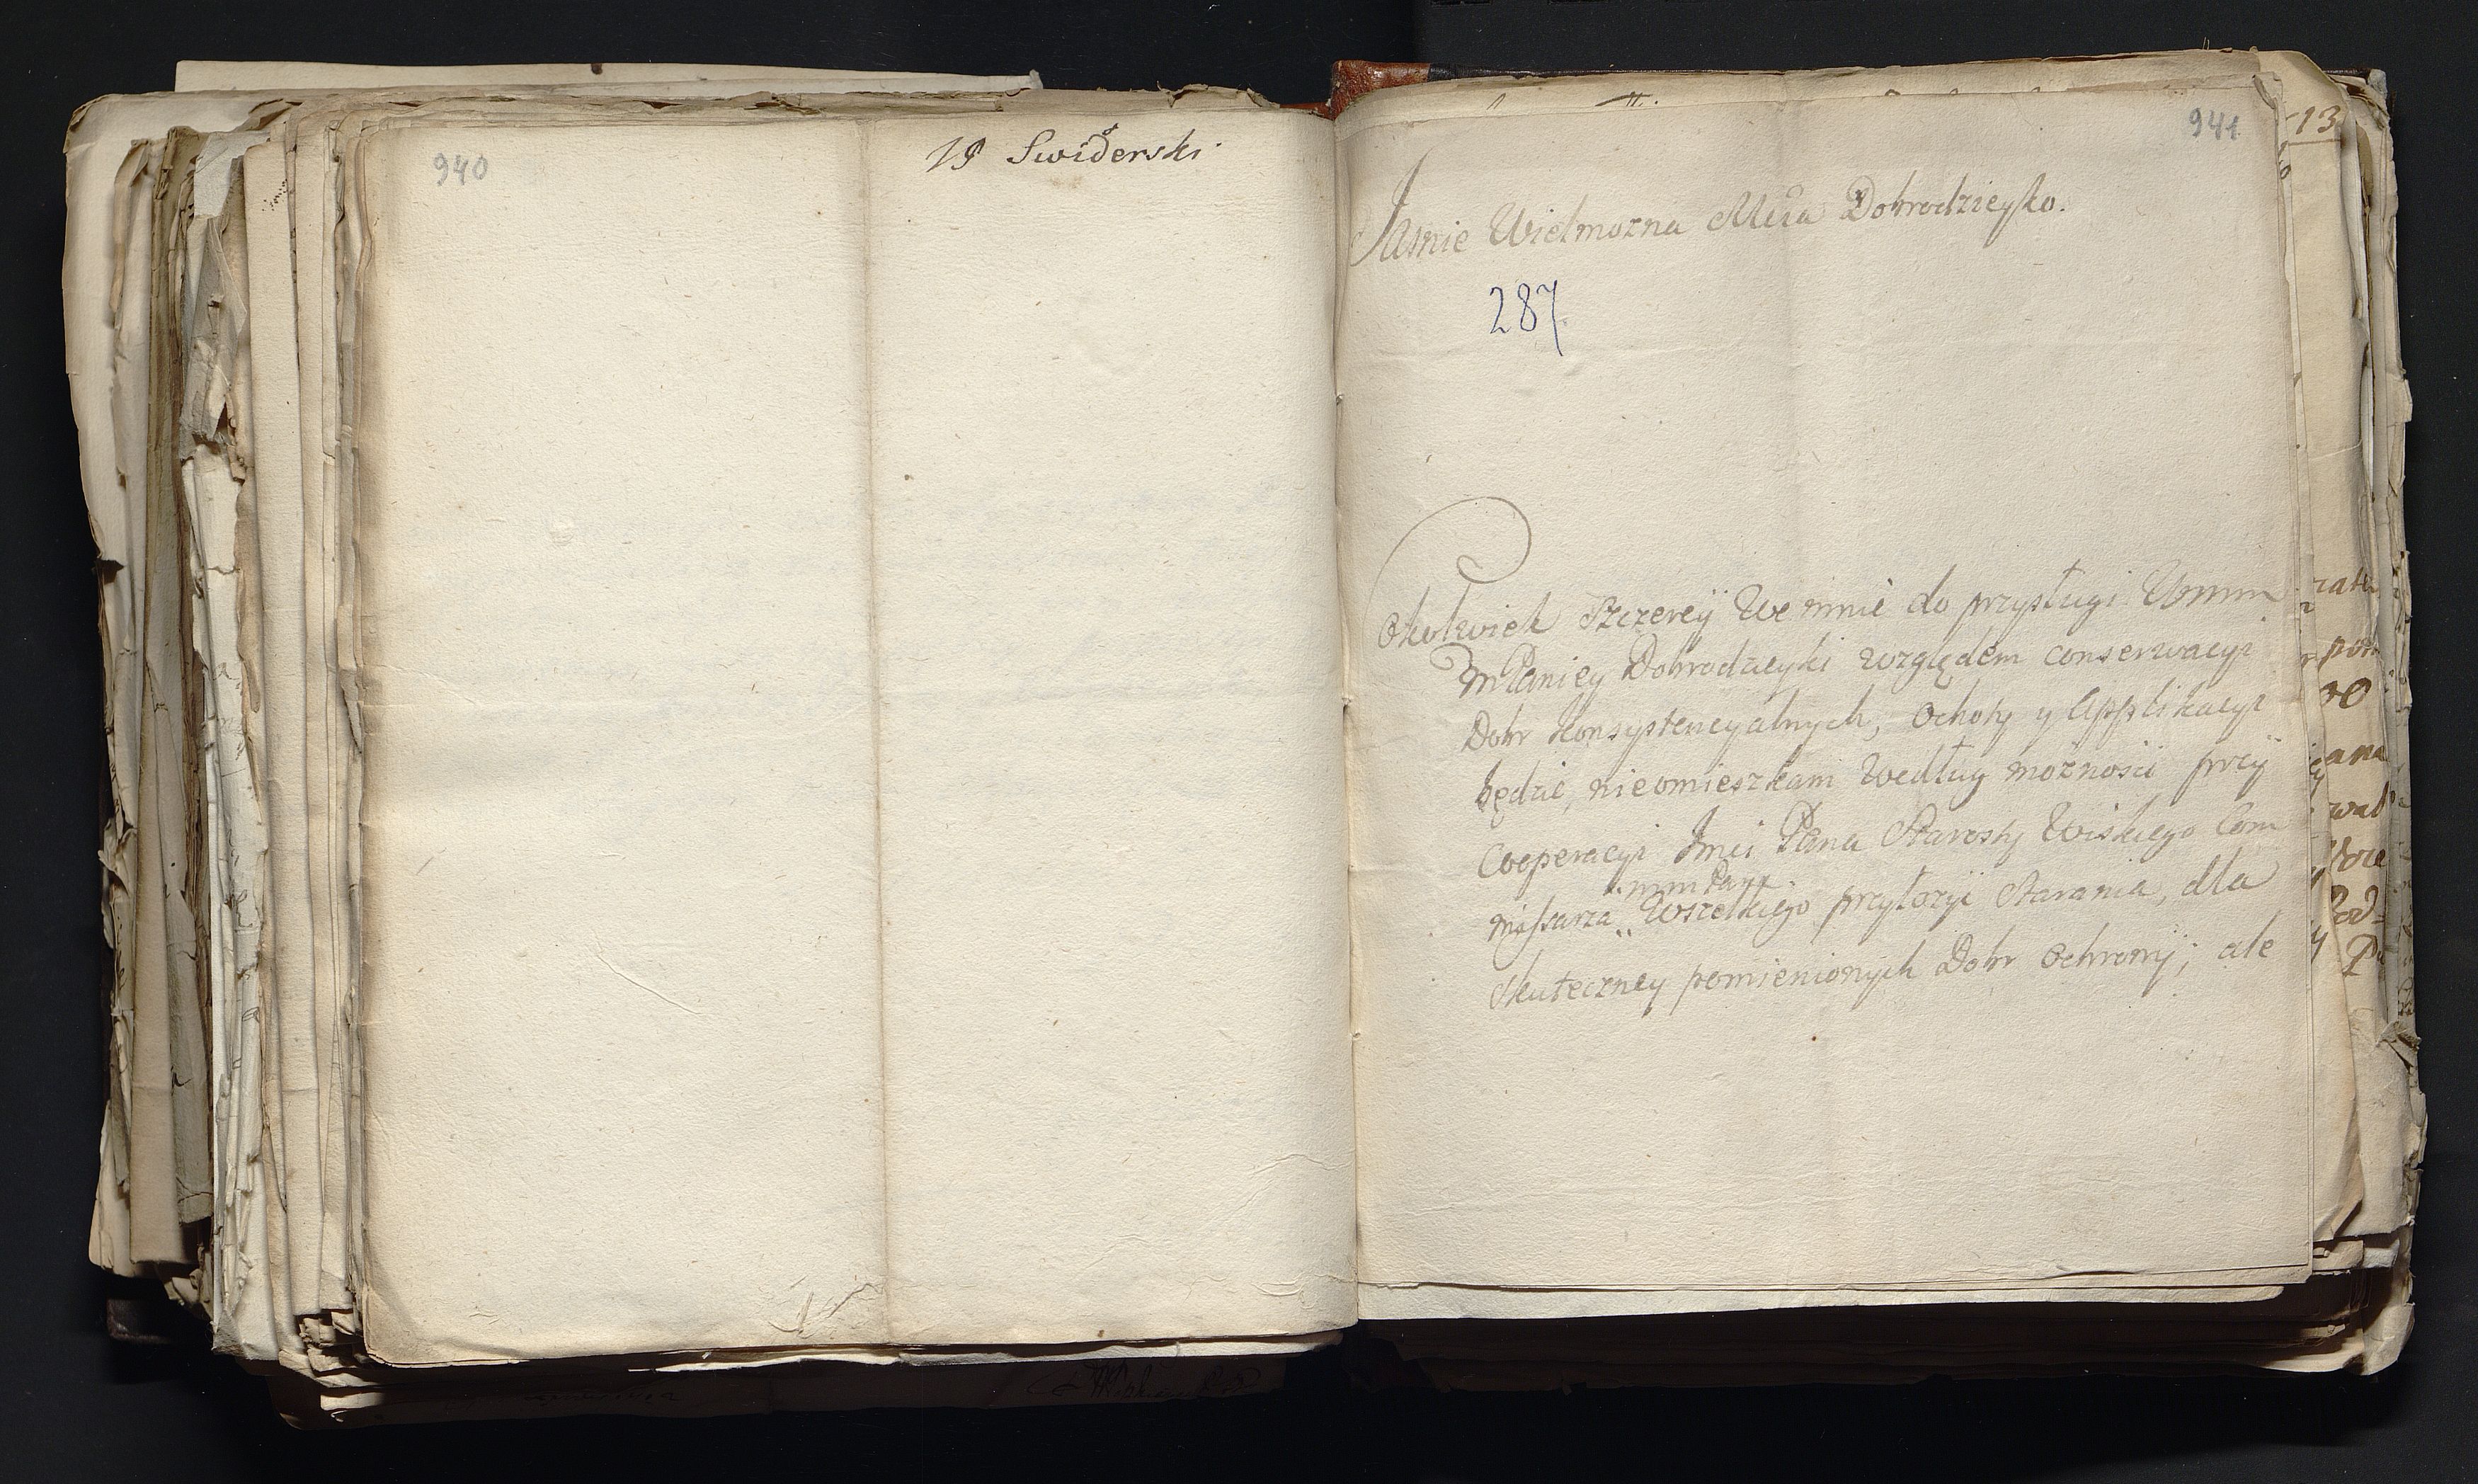 940
19 Swiderski
941
Jasnie Wielmozna Mcia Dobrodzieyko.
287
Cokolwiek Szczerey We mnie do przysługi Wmm
mPaniey Dobrodzieyki względem conserwacyi
Dobr konsystencyalnych, Ochoty y Applikacyi
będzie, nieomieszkam Według możności przy
Cooperacyi Jmci Pana Starosty Wiskiego Com
missarza Wszelkiego przyłożyć Starania, dla
skuteczney pomienionych Dobr Ochrony; ale
13